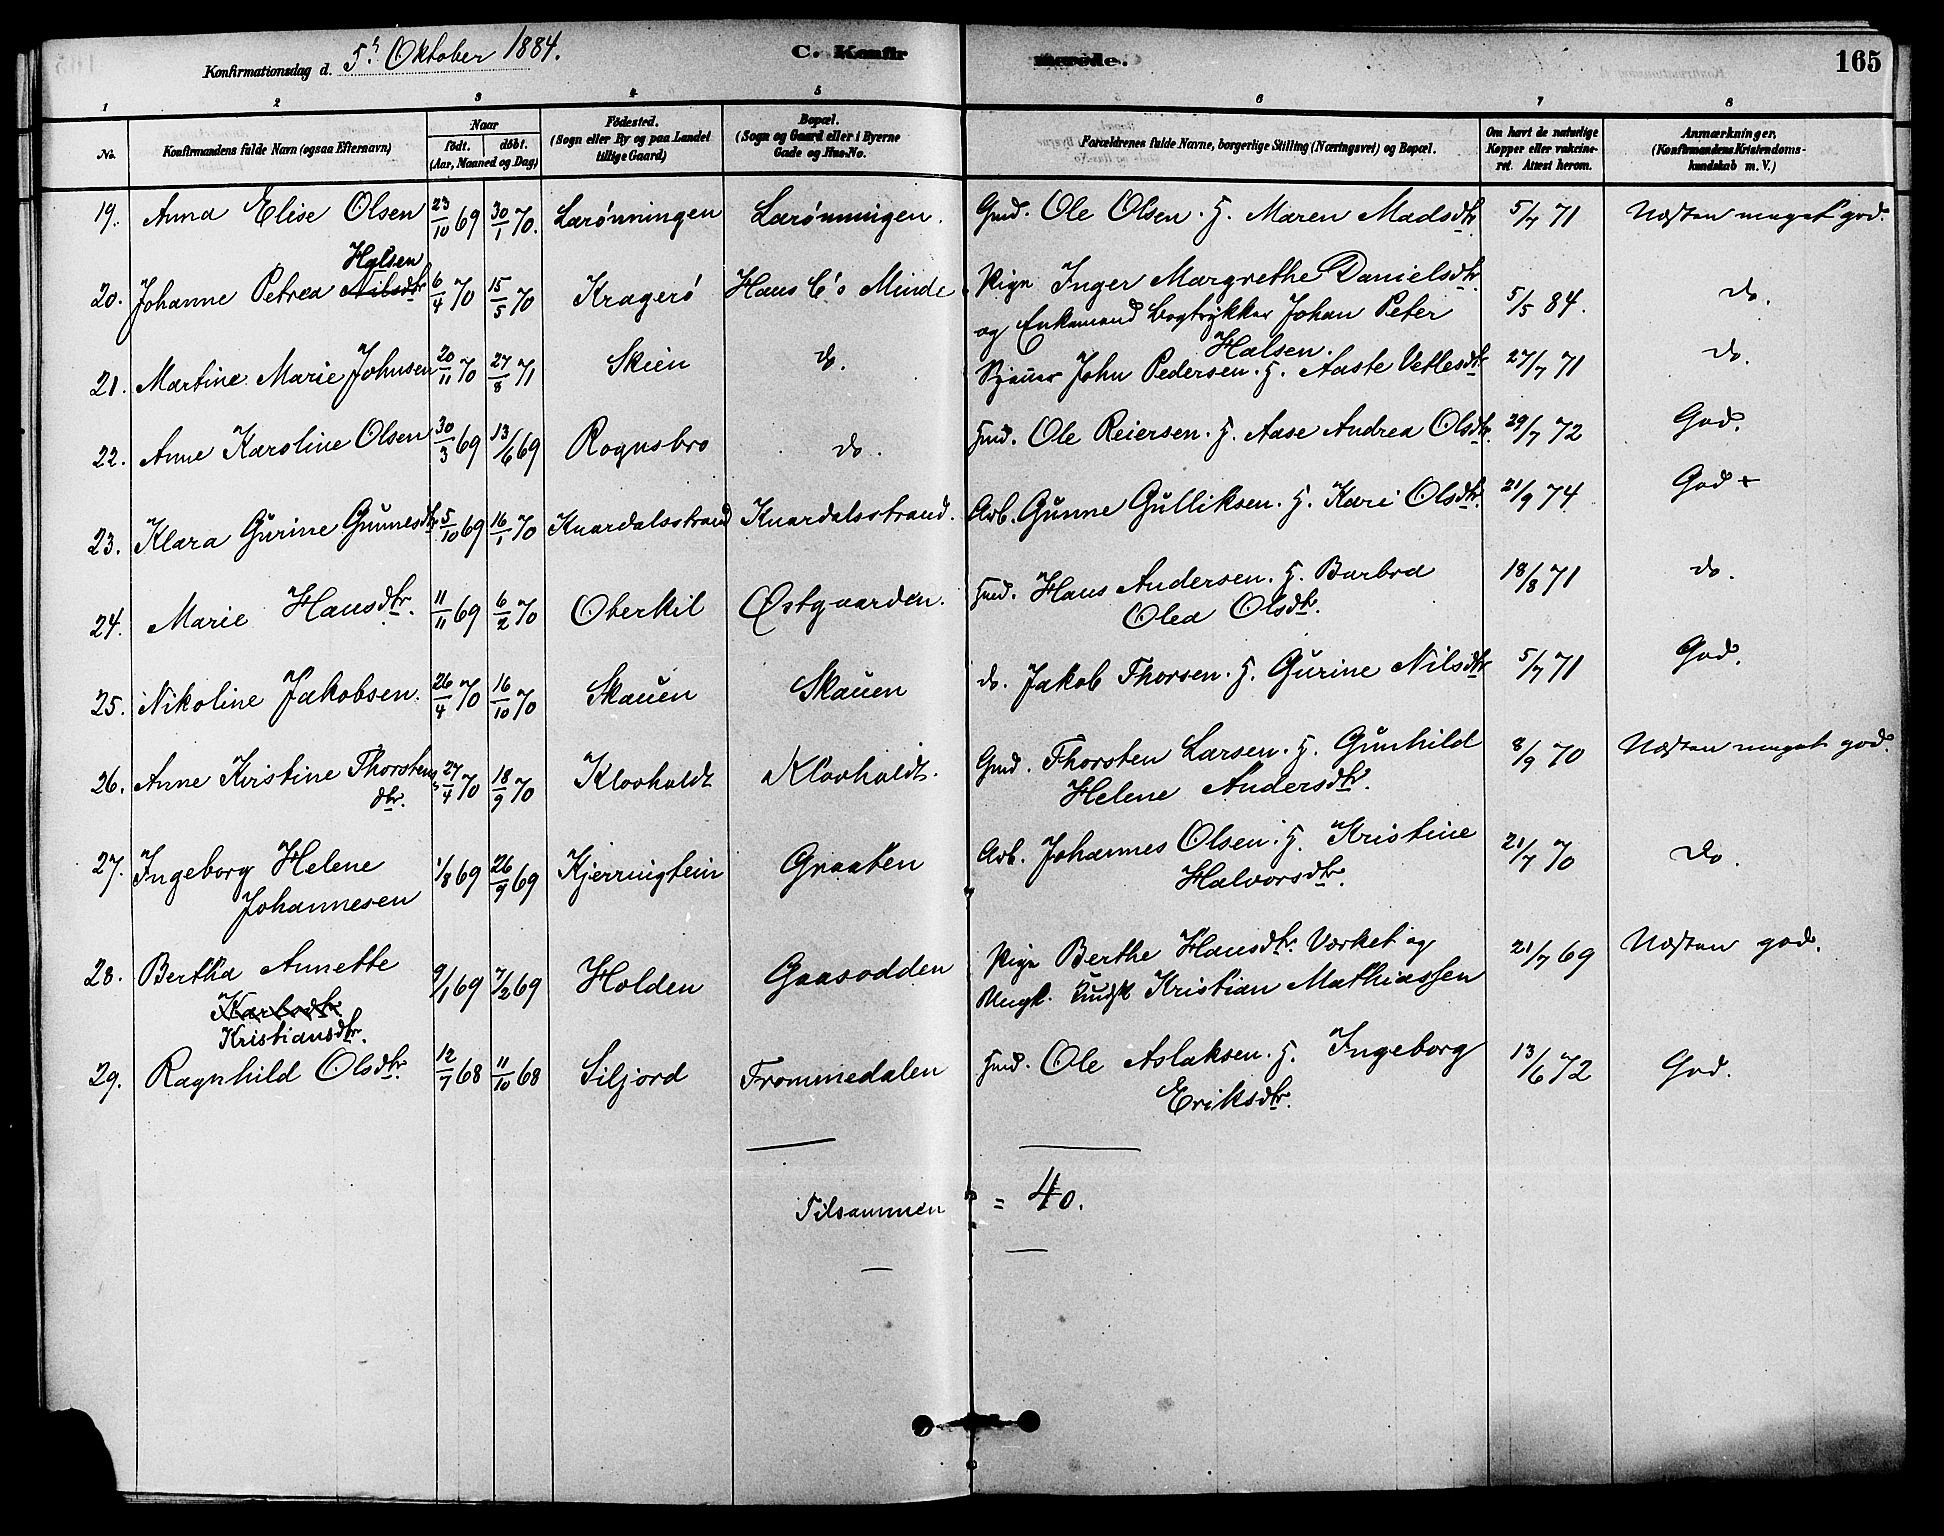 Konfirmationsdag d. 5te Oktober 1884.
C. Konfirmerede.
165
1 2 3 4 5 6 7 8
No.
Konfirmandens fulde Navn (ogsaa Efternavn)
Naar
født. døbt.
(Aar, Maaned og Dag)
Fødested.
(Sogn eller By og paa Landet
tillige Gaard)
Bopæl.
(Sogn og Gaard eller i Byerne
Gade og Hus-No.
Forældrenes fulde Navne, borgerlige Stilling (Næringsvei) og Bopæl.
Om havt de naturlige
Kopper eller vakcine-
ret. Attest herom.
Anmærkninger.
(Konfirmandens Kristendoms-
kundskab m. V.)
19. Anna Elise Olsen 23/10 69 30/1 70. Larønningen Larønningen. Gmd. Ole Olsen. H. Maren Madsdtr. 5/7 71 Næsten meget god.
Halsen
20. Johanne Petrea Nilsdtr 6/4 70 15/5 70 Kragerø Hans C's Minde Pige Inger Margrethe Danielsdtr. 5/5 84. do.
og Enkemand Bogtrykker Johan Peter
Halsen.
21. Martine Marie Johnsen 20/11 70 27/8 71 Skien do. Sjauer John Pedersen. H. Aaste Vetlesdtr 27/7 71 do.
22. Anne Karoline Olsen 30/3 69 13/6 69 Rognsbro do. Hmd. Ole Reiersen. H. Aase Andrea Olsdtr. 29/7 72 God.
23. Klara Gurine Gunnesdtr 5/10 69 16/1 70 Knardalsstrand Knardalsstrand. Arb. Gunne Gulliksen. H. Kari Olsdtr. 21/9 74 God +
24. Marie Hansdtr. 11/11 69 6/2 70 Oterkil Østgaarden. Hmd. Hans Andersen. H. Barbra 18/8 71 do.
Olea Olsdtr.
25. Nikoline Jakobsen. 26/4 70 16/10 70 Skauen Skauen do. Jakob Thorsen. H. Gurine Nilsdtr 5/7 71 God.
26. Anne Kristine Thorstens 27/4 70 18/9 70 Klovholdt Klovholdt. Gmd. Thorsten Larsen. H. Gunhild 8/9 70 Næsten meget god.
dtr. Helene Andersdtr.
27. Ingeborg Helene 1/8 69 26/9 69 Kjerringtein Graaten Arb. Johannes Olsen. H. Kristine 21/7 70 do.
Johannesen Halvorsdtr.
28. Bertha Annette 9/1 69 7/2 69 Holden Gaasodden Pige Berthe Hansdtr. Værket og 21/7 69 Næsten god.
Karlsdtr Ungk. Kristian Mathiassen
Kristiansdtr.
29. Ragnhild Olsdtr. 12/7 68 11/10 68 Siljord Frommedalen Hmd. Ole Aslaksen. H. Ingeborg 13/6 72 God.
Eriksdtr.
Tilsammen = 40.